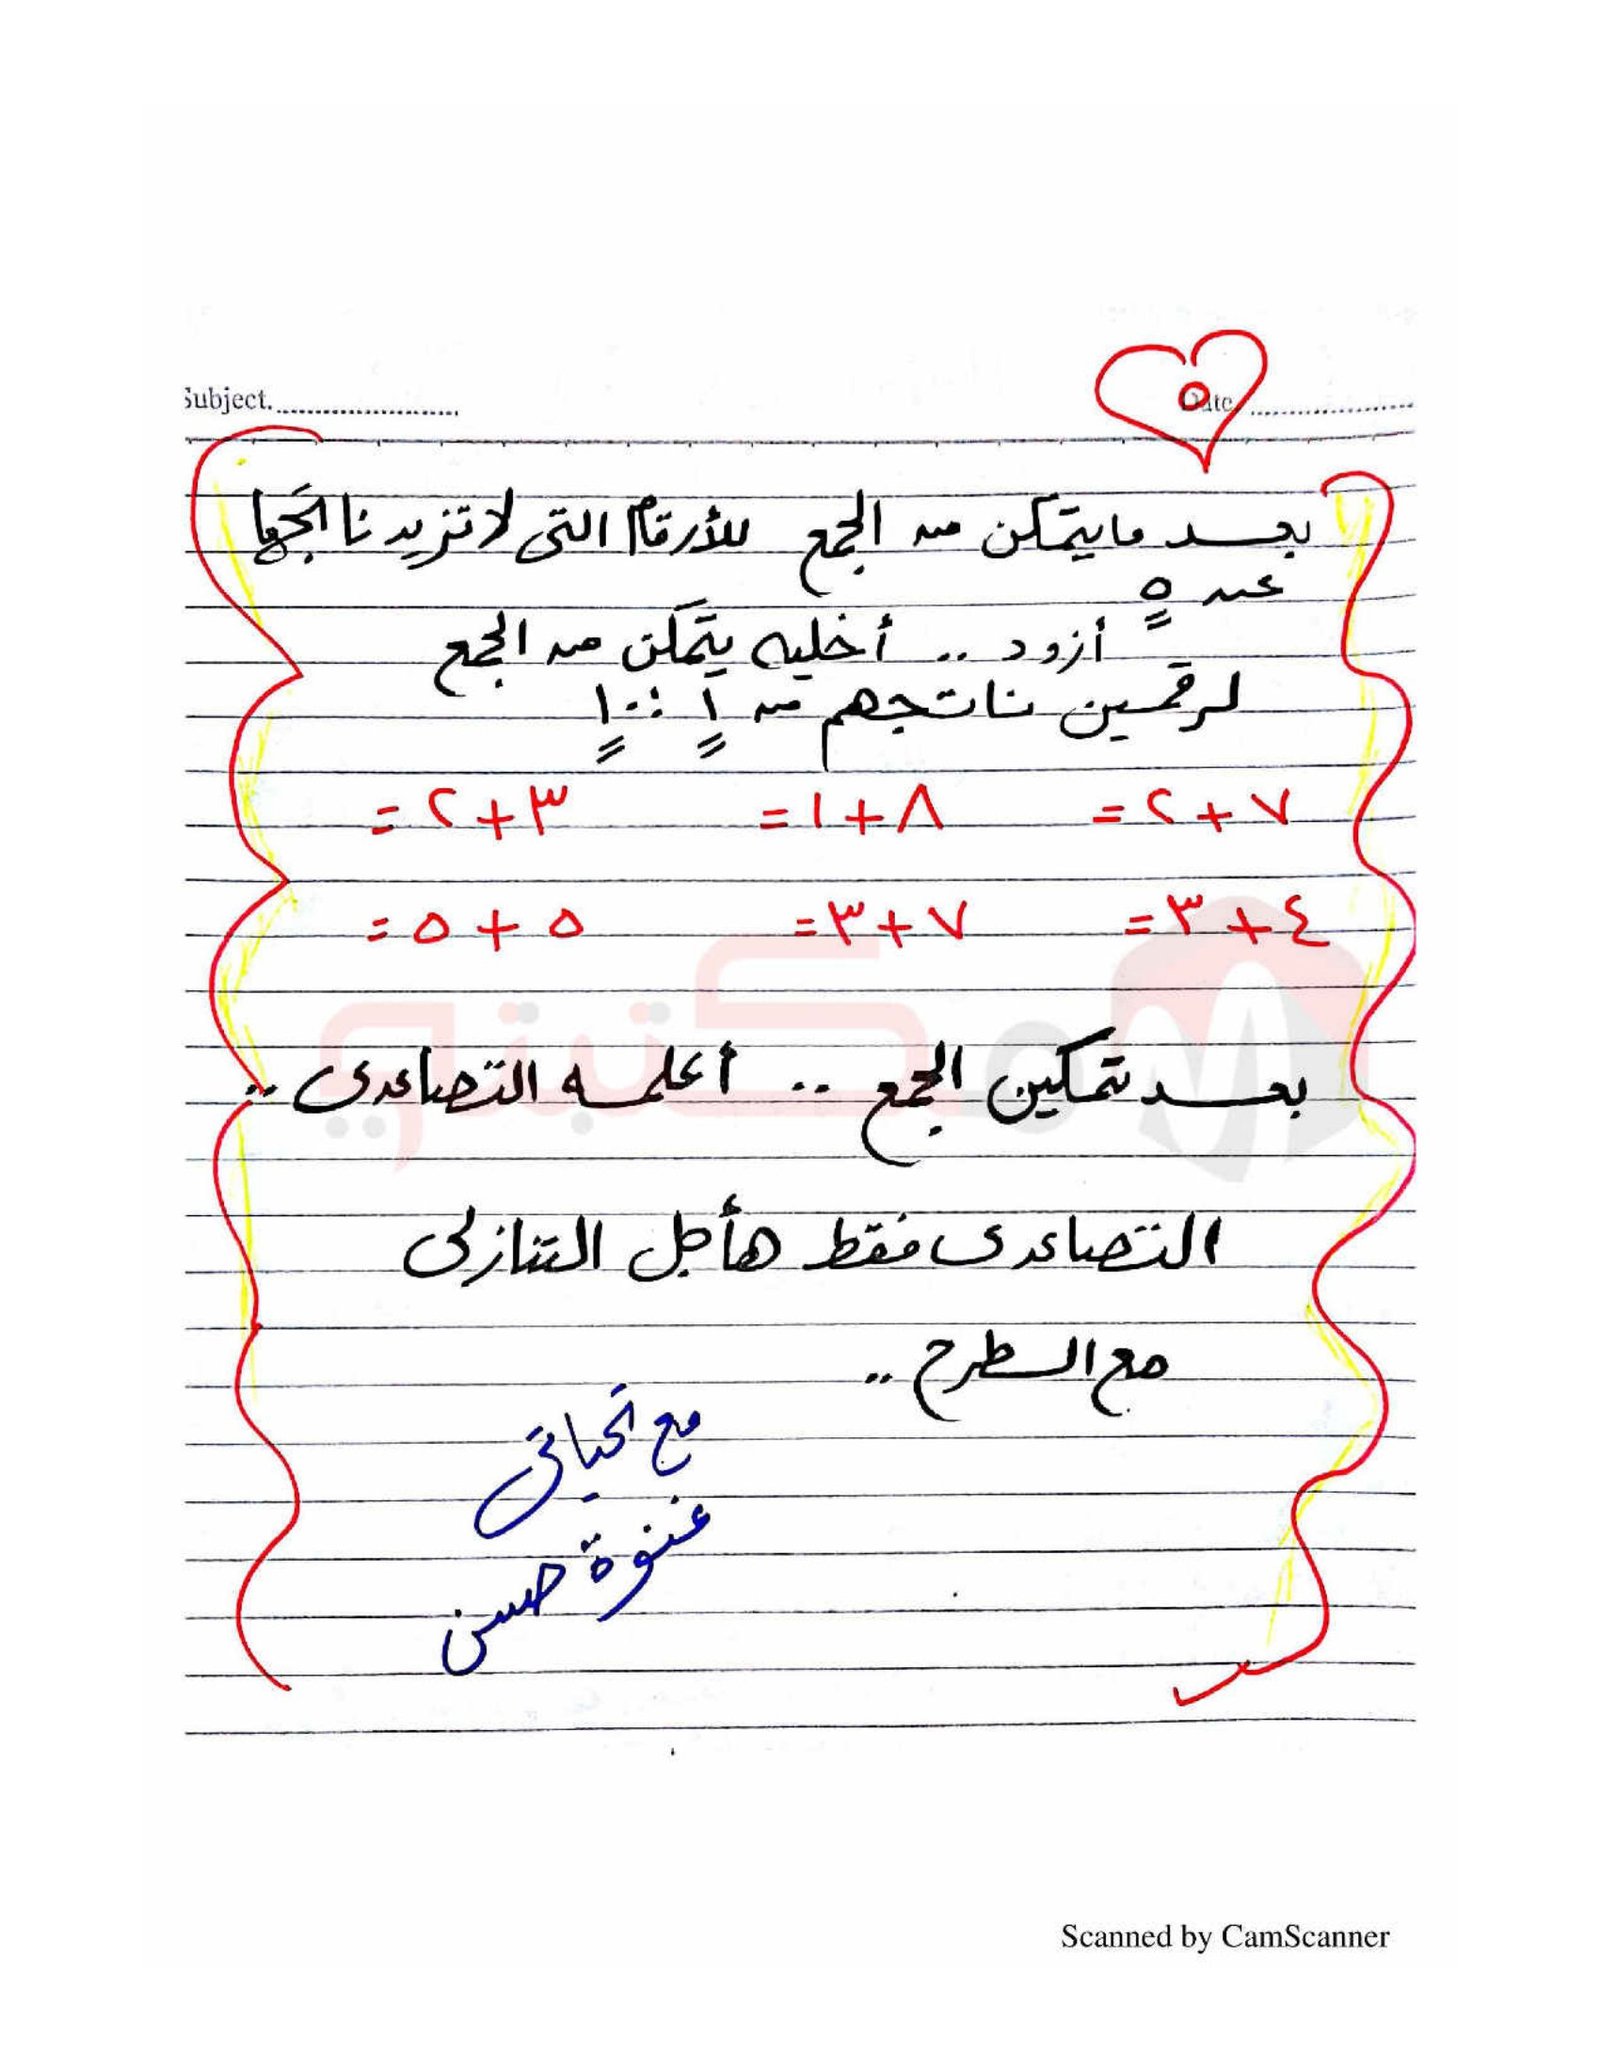 Subject. Date.
٥
بعد ما يتمكن من الجمع للأرقام التى لا تزيد ناتجها
عن ٥
أزود .. أخليه يتمكن من الجمع
لرقمين ناتجهم من ١ : ١٠
٧ + ٢ = ٨ + ١ = ٣ + ٢ =
٤ + ٣ = ٧ + ٣ = ٥ + ٥ =
مكتبتي
بعد تمكين الجمع .. أعلمه التصاعدى ..
التصاعدى فقط هأجل التنازلى
مع الطرح ..
مع تحياتى
غنوة حسن
Scanned by CamScanner